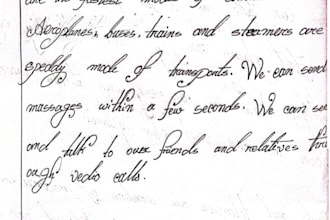 are the fastest modes of
Aeroplanes, buses, trains and steamers are
speddy mode of transports. We can send
massages within a few seconds. We can see
and talk to our friends and relatives thro
ough vedio calls.